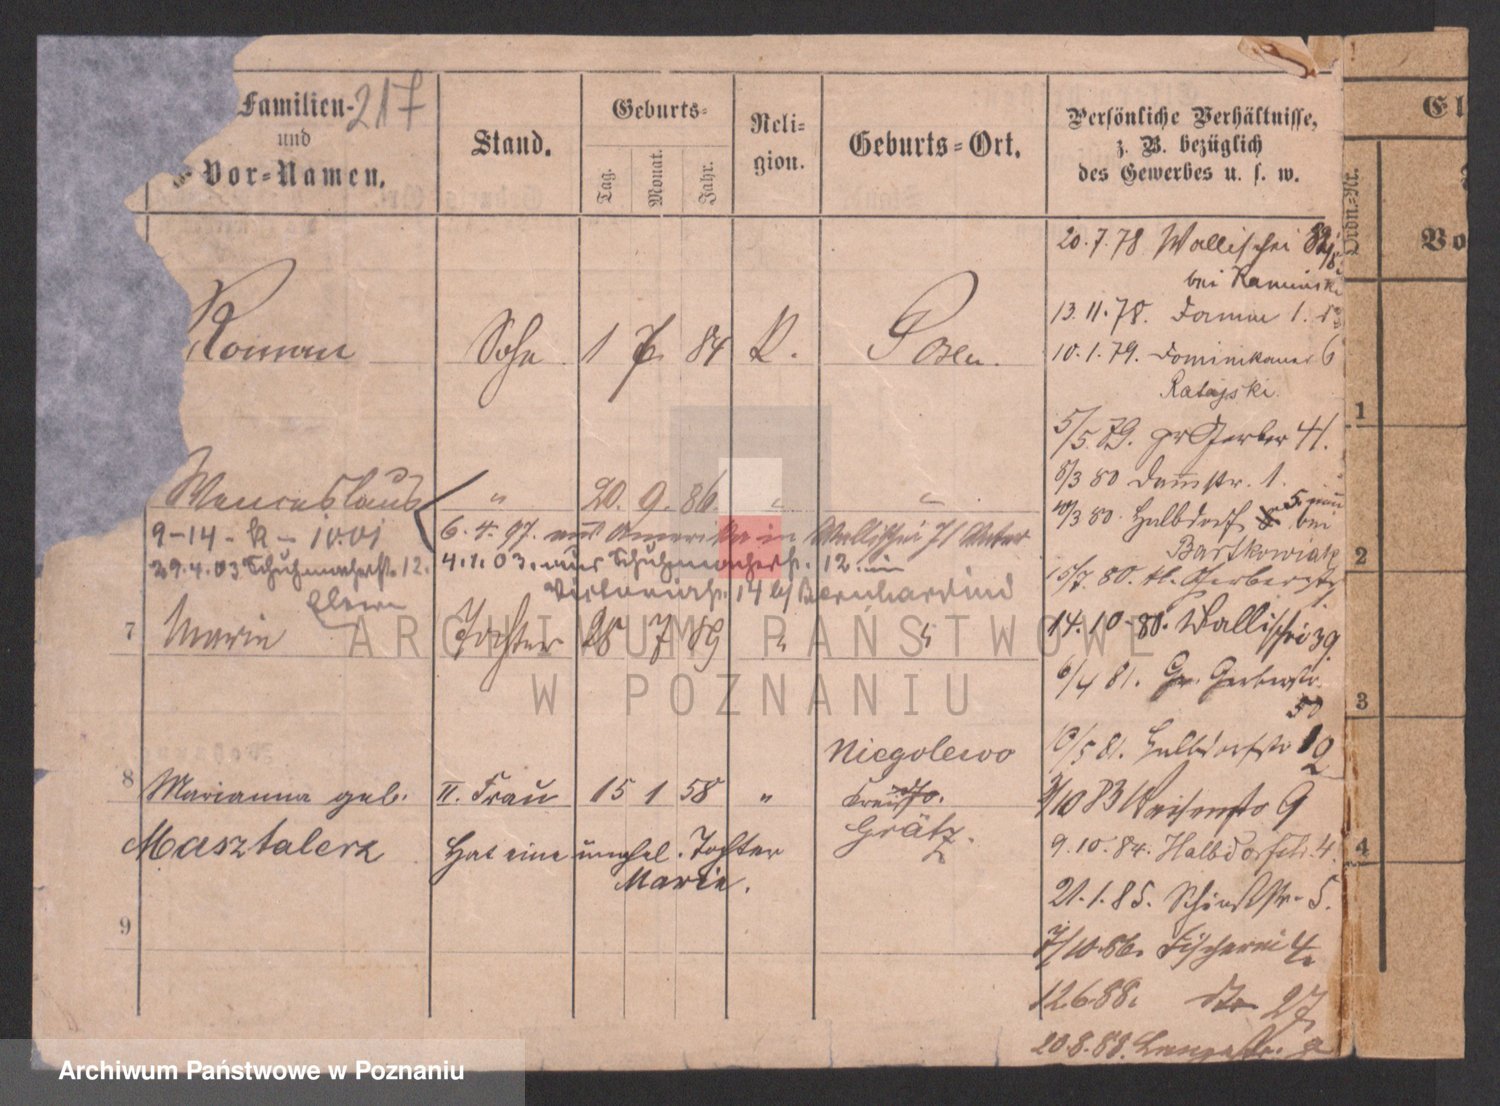 Familien- 217
und
Vor-Namen.
Stand.
Geburts-
Tag.
Monat.
Jahr.
Reli-
gion.
Geburts-Ort.
Persönliche Verhältnisse,
z. B. bezüglich
des Gewerbes u. s. w.
Roman Sohn 1 7 84 K. Posen.
Wenceslaus " 20. 9. 86. " "
9-14- k - 10.01
29.4.03 Schuhmacherstr. 12.
Eltern
6. 4. 97. aus Amerika in Wallischei
4.1.03. aus Schuhmacherstr. 12. in
Victoriastr. 14 b/ Bernhardine
7 Marie Tochter 28 7 89 " "
8 Marianna geb. II. Frau 15 1 58 " Niegolewo
Kreis
Grätz.
Masztalerz Hat eine unehel. Tochter
Marie.
9
20.7.78 Wallischei
bei Kaminski
13.11.78. Damm 1.
10.1.79. Dominikaner 6
Ratajski.
5/5.79. gr Gerber 41.
8/3 80 Dammstr. 1.
10/3 80. Halbdorf bei
Bartkowiak
15/7. 80. kl. Gerberstr
14.10.80. Wallischei 39
6/4 81. Gr. Gerberstr.
50
10/5 81. Halbdorfstr 10
3/10 83 Waisenstr 9
9.10.84. Halbdorfstr. 4.
21.1.85. Schiesstr. 5.
7/10.86. Fischerei 4.
12.6.88. dto 27.
20.8.88. Langestr.
El
Ordn.-Nr.
Vo
1
2
3
4
ARCHIWUM PAŃSTWOWE
W POZNANIU
Archiwum Państwowe w Poznaniu